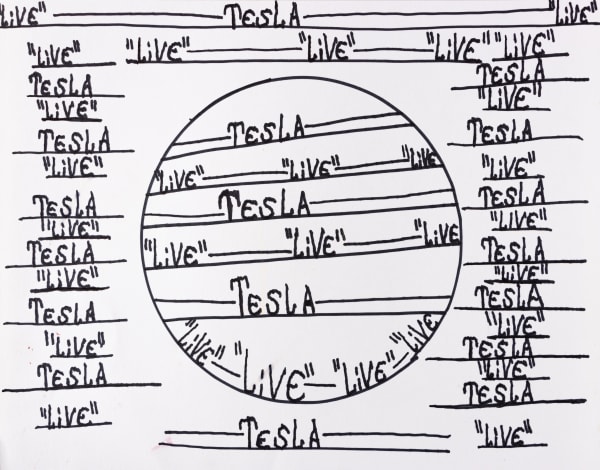 "LIVE" TESLA "LIVE"
"LIVE" "LIVE" "LIVE"
"LIVE"
TESLA
"LIVE"
TESLA
"LIVE"
TESLA
"LIVE"
TESLA
"LIVE"
TESLA
"LIVE"
TESLA
"LIVE"
TESLA
"LIVE" "LIVE" "LIVE"
TESLA
"LIVE" "LIVE" "LIVE
TESLA
"LIVE" "LIVE" "LIVE" "LIVE
TESLA
"LIVE"
TESLA
"LIVE"
TESLA
"LIVE"
TESLA
"LIVE"
TESLA
"LIVE"
TESLA
"LIVE"
TESLA
"LIVE"
TESLA
"LIVE"